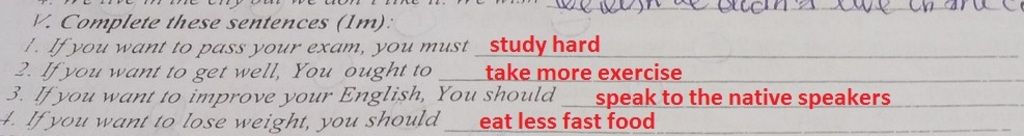 4. We live in the city but we don't like it. We wish
V. Complete these sentences (1m):
1. If you want to pass your exam, you must study hard
2. If you want to get well, You ought to take more exercise
3. If you want to improve your English, You should speak to the native speakers
4. If you want to lose weight, you should eat less fast food